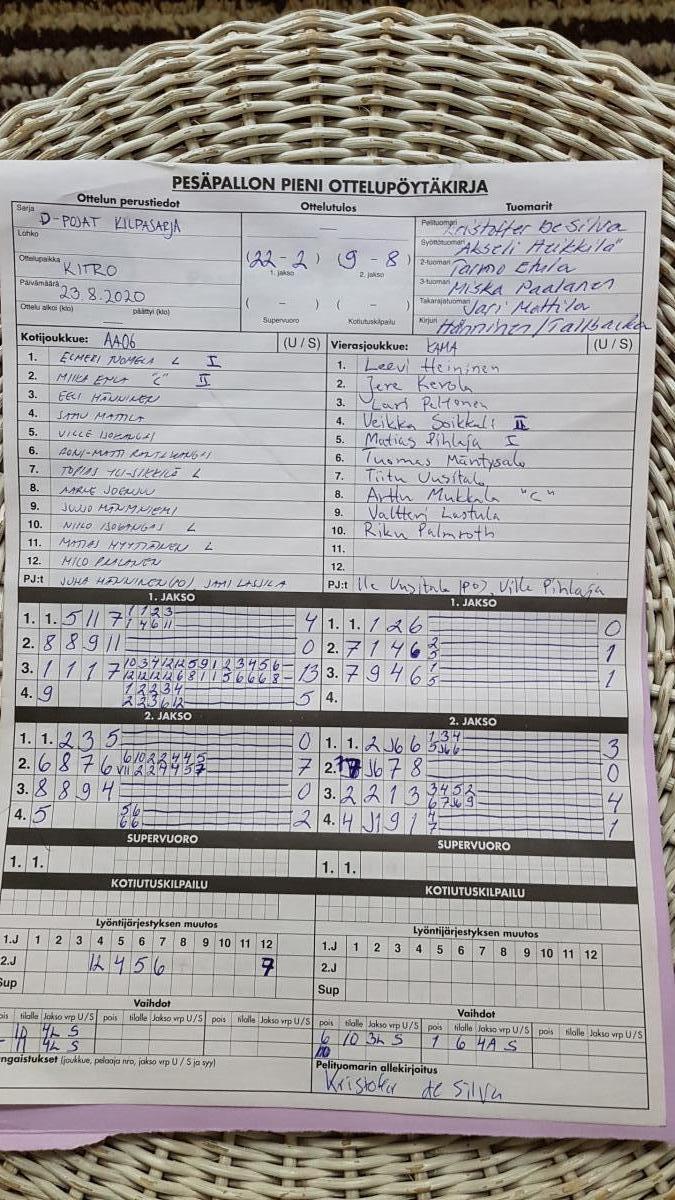 PESÄPALLON PIENI OTTELUPÖYTÄKIRJA
Ottelun perustiedot
Sarja D-POJAT KILPASARJA
Lohko
Ottelupaikka KITRO
Päivämäärä 23.8.2020
Ottelu alkoi (klo) päättyi (klo)
Ottelutulos
(22 - 2) (9 - 8)
1. jakso 2. jakso
( - ) ( - )
Supervuoro Kotiutuskilpailu
Tuomarit
Pelituomari Kristoffer De Silva
Syöttötuomari Akseli Heikkilä
2-tuomari Tarmo Etula
3-tuomari Miska Paalanen
Takarajatuomari Jari Mattila
Kirjuri Hänninen/Tallbacka
Kotijoukkue: AA06 (U / S)
1. ELMERI TUOMELA L I
2. MIIKA "C" II
3. EELI HÄNNINEN
4. SAMU MATTILA
5. VILLE ISOKANGAS
6. RONI-MATTI RANTAKANGAS
7. TOPIAS YLI-SIKKILÄ L
8. AARNE
9. JUUSO HÄNNINIEMI
10. NIILO ISOKANGAS L
11. MATIAS HYYTIÄINEN L
12. MILO PAALANEN
PJ:t JUHA HÄNNINEN (PO) SAMI LASSILA
Vierasjoukkue: KAMA (U / S)
1. Leevi Heininen
2. Jere Kerola
3. Lari Peltonen
4. Veikka Soikkeli II
5. Matias Pihlaja I
6. Tuomas Mäntysalo
7. Tiitu Uusitalo
8. Arttu Mukkala "C"
9. Valtteri Lastula
10. Riku Palmroth
11.
12.
PJ:t Ile Uusitalo (PO), Ville Pihlaja
1. JAKSO
1. 1. 5 11 7 1 1 2 3 4
1 4 6 11
2. 8 8 9 11 0
3. 1 1 1 7 10 3 4 12 12 5 9 1 2 3 4 5 6 13
12 12 12 12 6 8 1 1 5 6 6 6 8
4. 9 1 2 2 3 4 5
2 2 3 6 12
1. JAKSO
1. 1. 1 2 6 0
2. 7 1 4 6 2 1
5
3. 7 9 4 6 1 1
5
4.
2. JAKSO
1. 1. 2 3 5 0
2. 6 8 7 6 6 10 2 2 4 4 5 7
VII 2 2 4 4 5 7
3. 8 8 9 4 0
4. 5 5 6 2
6 6
2. JAKSO
1. 1. 2 J6 6 1 3 4 3
5 J6 6
2. J6 7 8 0
3. 2 2 1 3 3 4 5 2 4
6 7 J6 9
4. 4 J1 9 1 4 1
7
SUPERVUORO
1. 1.
SUPERVUORO
1. 1.
KOTIUTUSKILPAILU
KOTIUTUSKILPAILU
Lyöntijärjestyksen muutos
1.J 1 2 3 4 5 6 7 8 9 10 11 12
2.J 12 4 5 6 7
Sup
Lyöntijärjestyksen muutos
1.J 1 2 3 4 5 6 7 8 9 10 11 12
2.J
Sup
Vaihdot
pois tilalle Jakso vrp U/S pois tilalle Jakso vrp U/S pois tilalle Jakso vrp U/S
10 4L S
11 4L S
Vaihdot
pois tilalle Jakso vrp U/S pois tilalle Jakso vrp U/S pois tilalle Jakso vrp U/S
6 10 3L S 1 6 4A S
10
ngaistukset (joukkue, pelaaja nro, jakso vrp U / S ja syy)
Pelituomarin allekirjoitus
Kristoffer de Silva